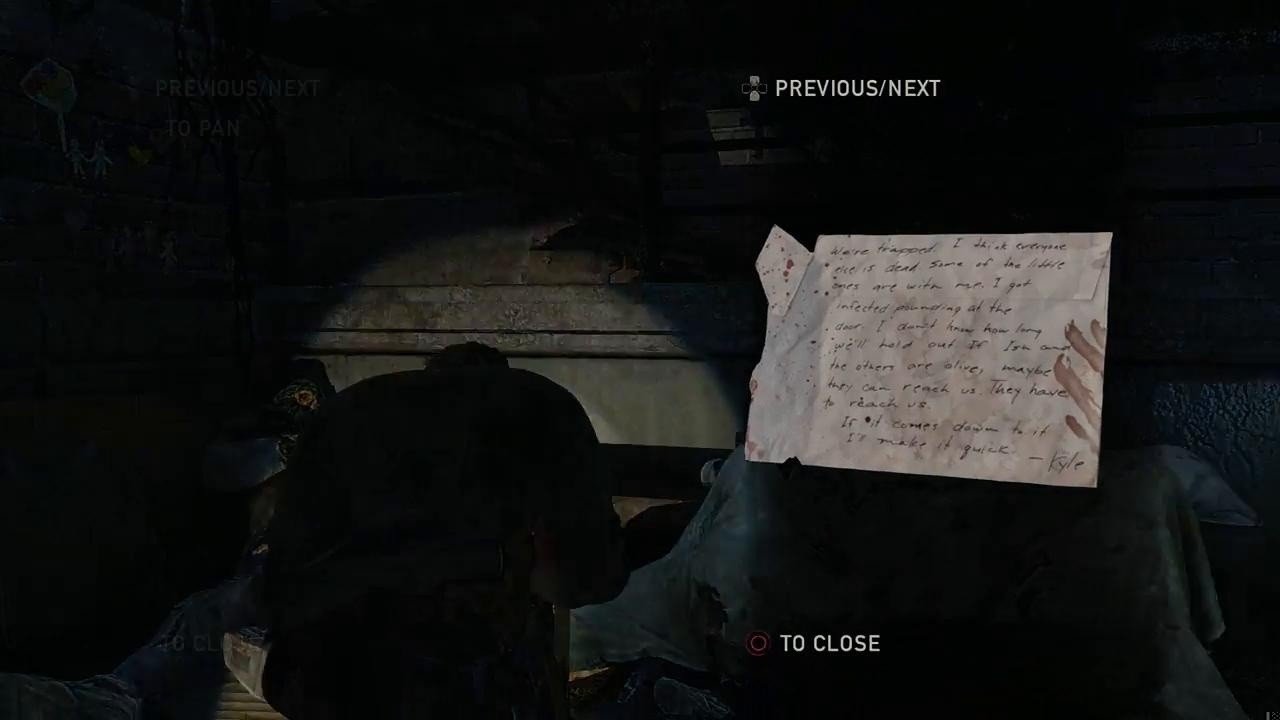 PREVIOUS/NEXT
TO PAN
PREVIOUS/NEXT
We're trapped. I think everyone
else is dead some of the little
ones are with me. I got
infected pounding at the
door. I don't know how long
we'll hold out If Ish and
the others are alive, maybe
they can reach us. They have
to reach us.
If it comes down to it
I'll make it quick. - Kyle
TO CLOSE
TO CLOSE